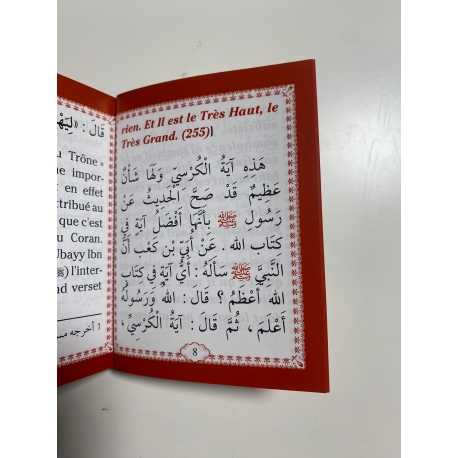 rien. Et Il est le Très Haut, le
Très Grand. (255)}
هَذِهِ آيَةُ الْكُرْسِيِّ وَلَهَا شَأْنٌ
عَظِيمٌ قَدْ صَحَّ الْحَدِيثُ عَنْ
رَسُولِ ﷺ بِأَنَّهَا أَفْضَلُ آيَةٍ فِي
كِتَابِ اللهِ . عَنْ أُبَيِّ بْنِ كَعْبٍ أَنَّ
النَّبِيَّ ﷺ سَأَلَهُ : أَيُّ آيَةٍ فِي كِتَابِ
اللهِ أَعْظَمُ ؟ قَالَ : اللهُ وَرَسُولُهُ
أَعْلَمَ ، ثُمَّ قَالَ : آيَةُ الْكُرْسِيِّ ،
8
قَالَ :
u Trône »
ue impor-
, en effet
attribué au
que c'est
u Coran.
Ubayy Ibn
(ﷺ) l'inter-
nd verset
1 أخرجه